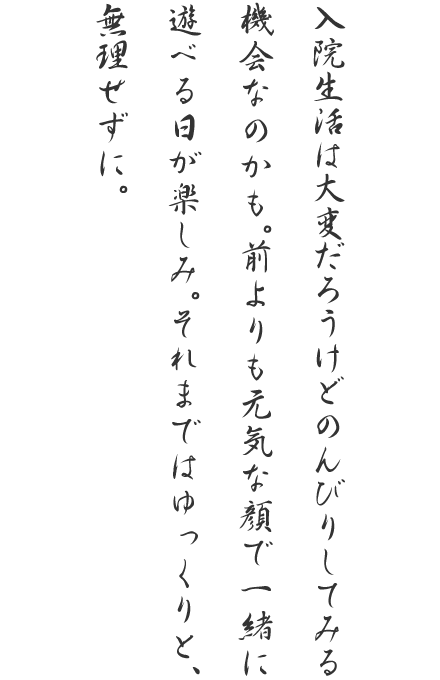 入院生活は大変だろうけどのんびりしてみる
機会なのかも。前よりも元気な顔で一緒に
遊べる日が楽しみ。それまではゆっくりと、
無理せずに。